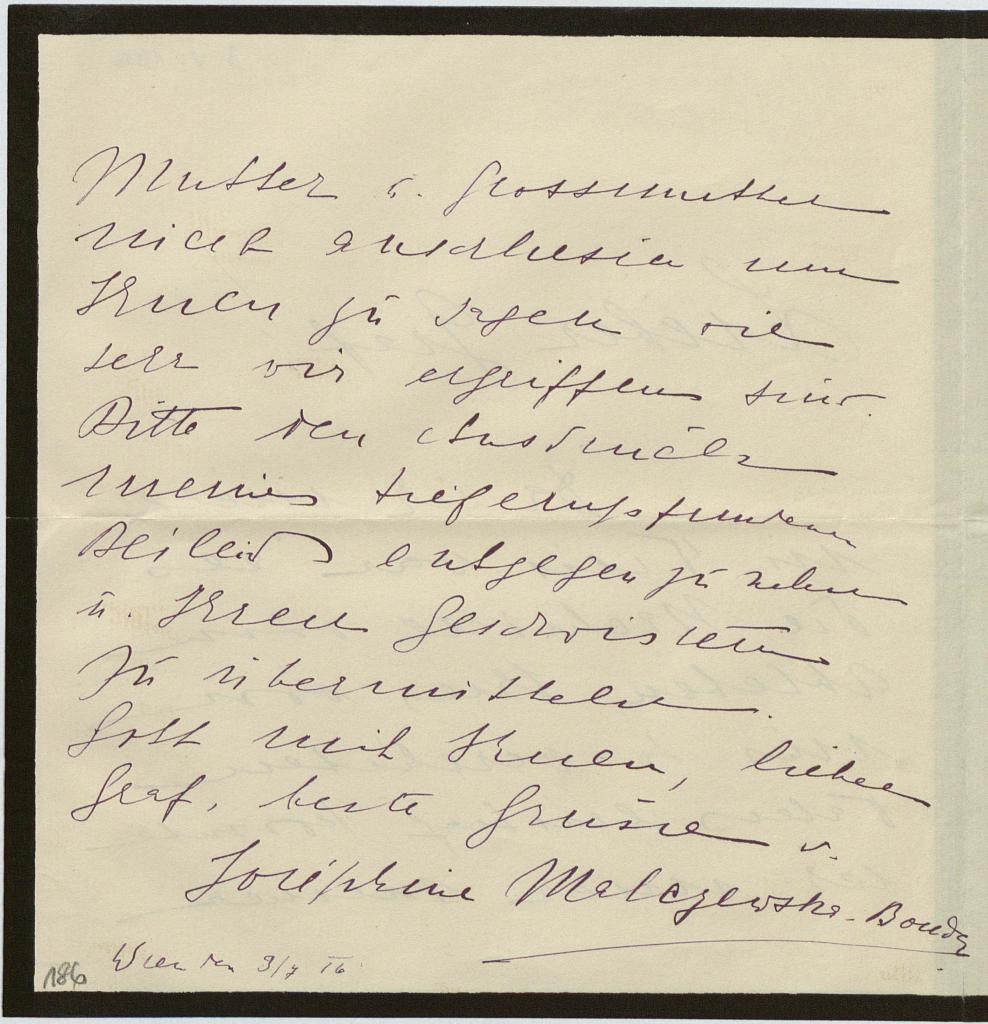 Mutter u. Grossmutter
nicht um
Ihnen zu sagen wie
sehr wir ergriffen sind.
Bitte den Ausdruck
meines tiefempfundenen
Beileids entgegen zu nehmen
u. Ihren Geschwistern
zu übermitteln.
Gott mit Ihnen, lieber
Graf, beste Grüsse v.
Joséphine Malczewska-
Wien den 3/7 16.
186